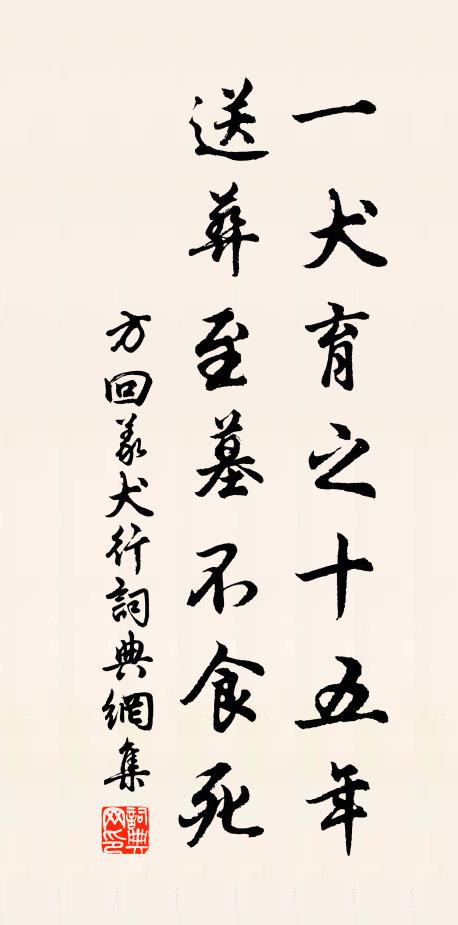 一犬育之十五年
送葬至墓不食死
方回義犬行詞典網集
詞典網印